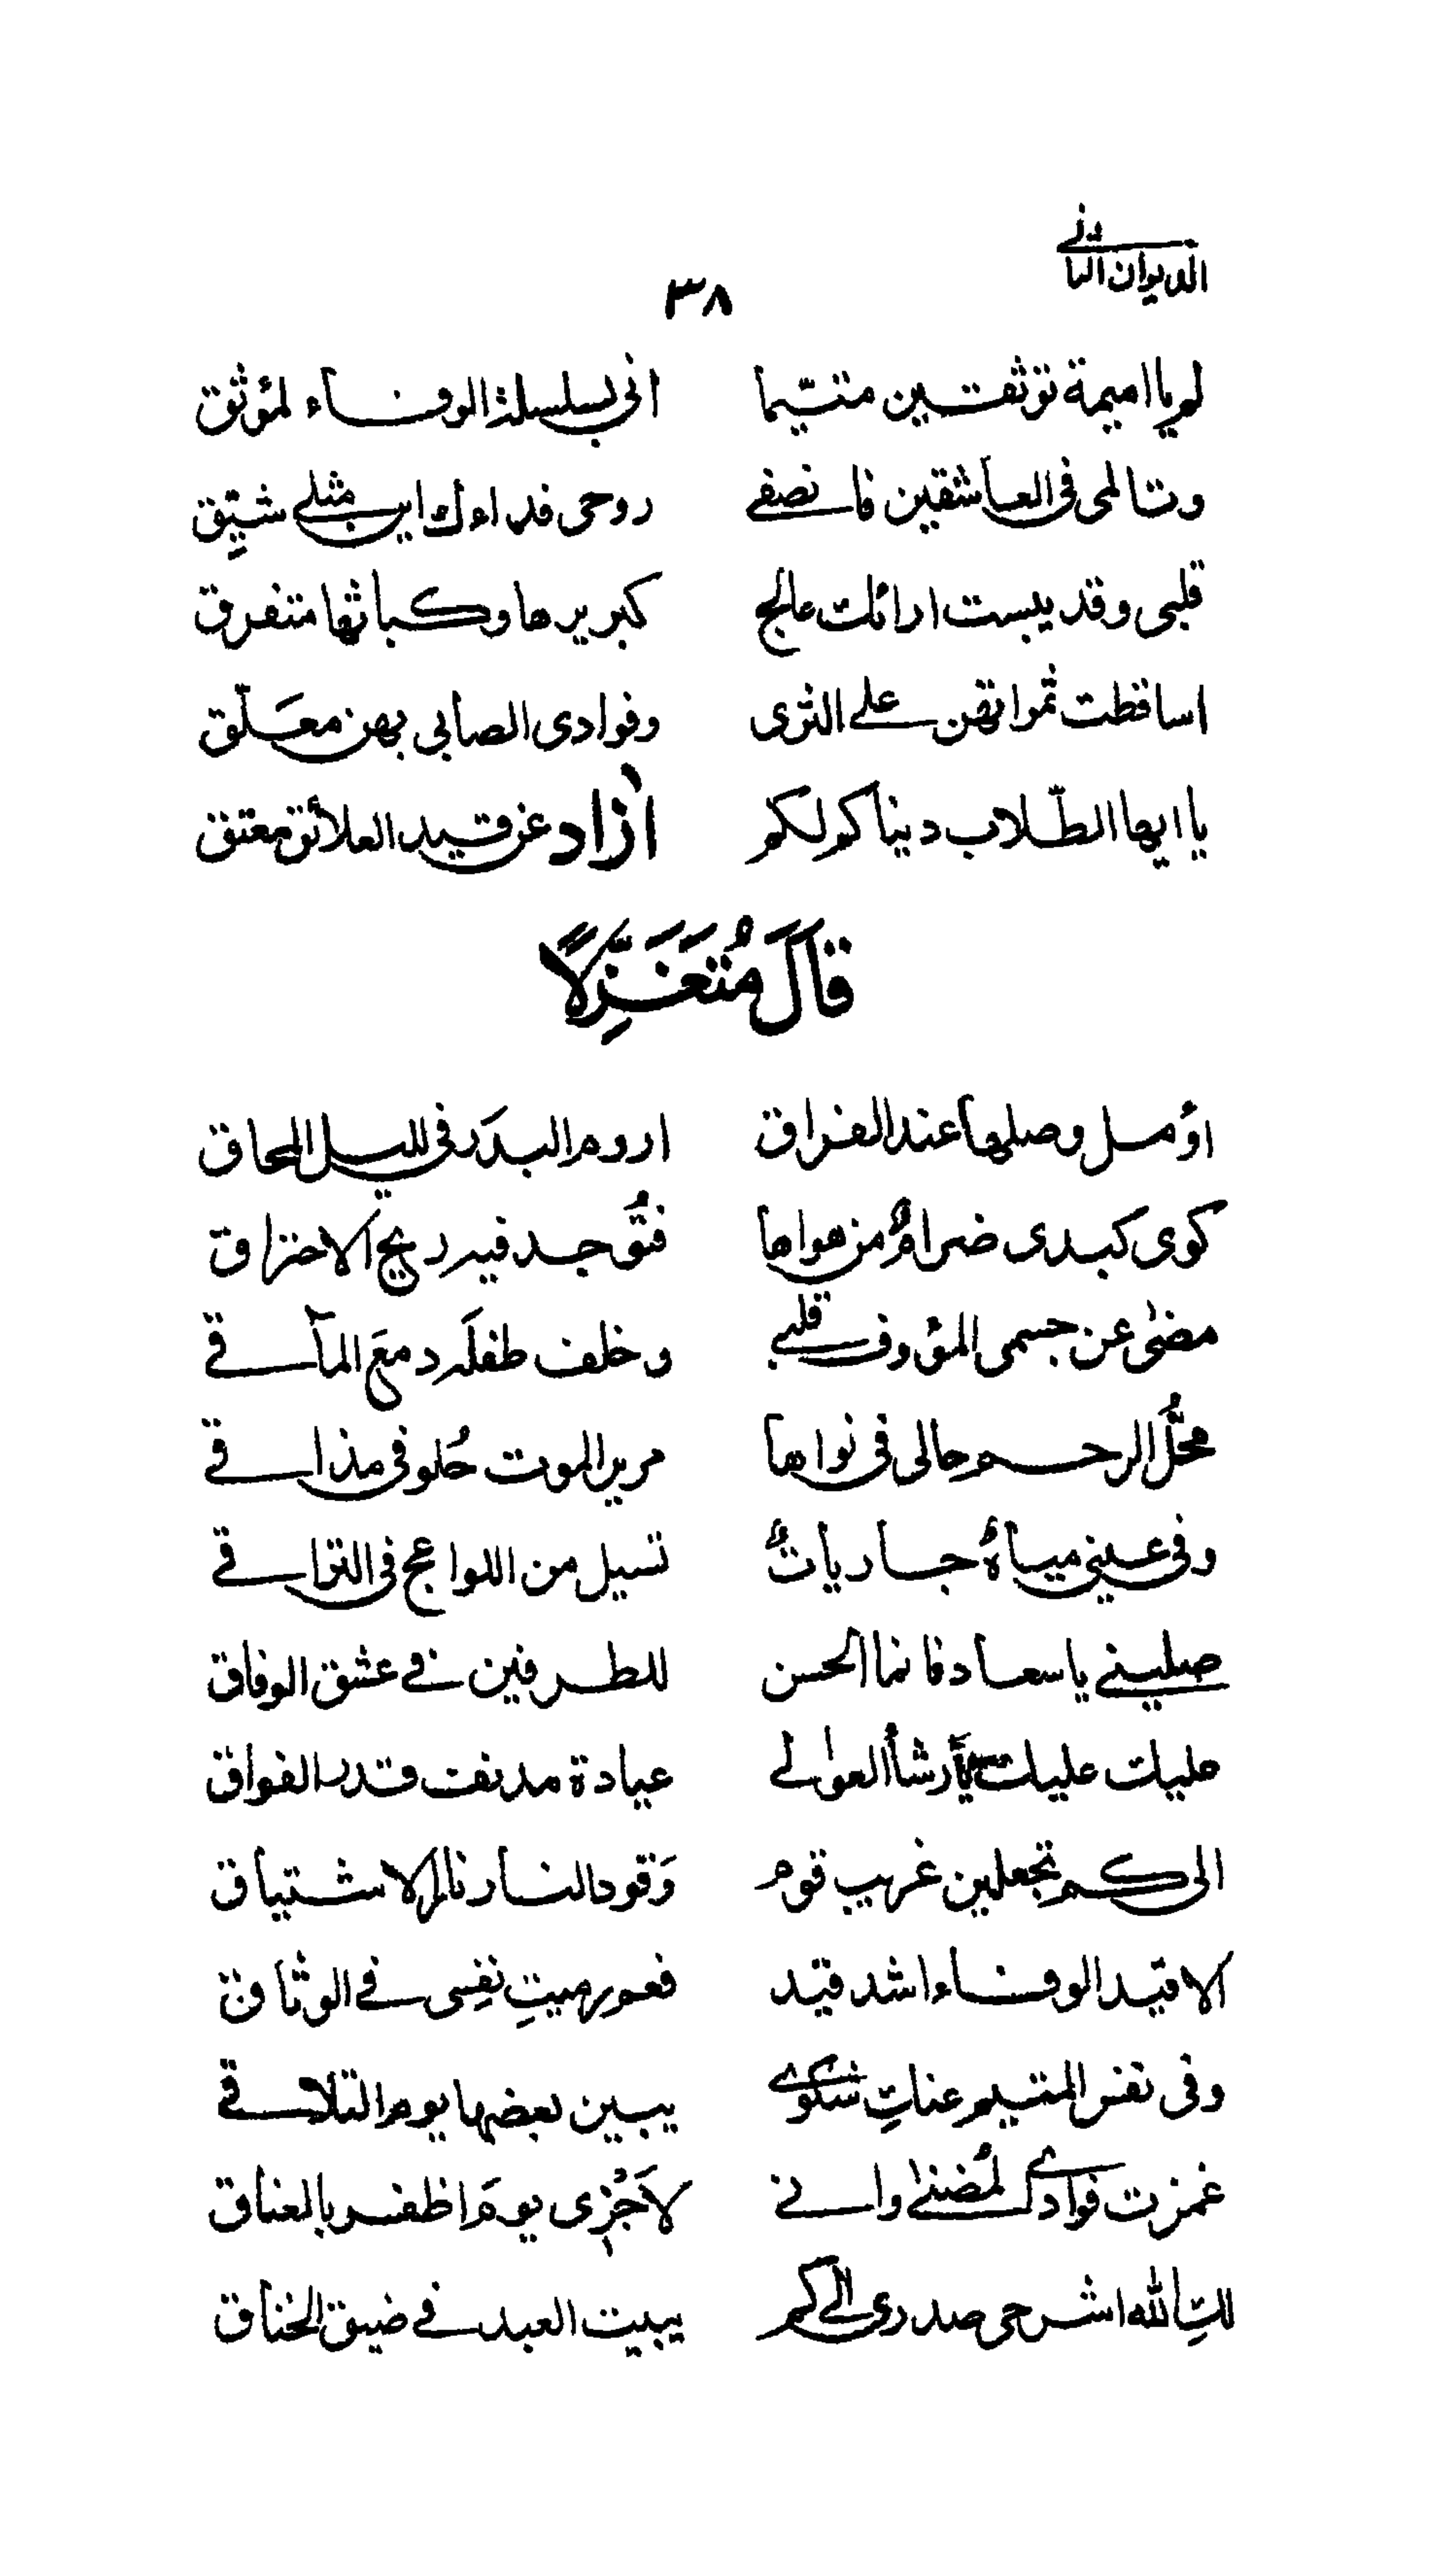 الديوان الثاني
٣٨
لم يا اميمة توثقين متيّما اني بسلسلة الوفاء لمؤثق
وتالمى فى العاشقين فانصفے روحى فداءك اين مثلے شيّق
قلبى وقد يبست ارائك عالج كبريرها وكباثها متفرق
اساقطت ثمراتهن علے الثرى وفوادى الصابى بهن معلّق
يا ايها الطّلاب دنياكم لكم ازاد عن قيد العلائق معتق
قَالَ مُتَغَزِّلًا
اؤمل وصلها عند الفراق اروم البدَر فى لليل المحاق
كوى كبدى ضرامٌ من هواها فتُوّجد فيه ريح الاحتراق
مضىٰ عن جسمى المؤوف قلبے وخلف طفلَه دمعَ المآقے
محلُّ الرحم حالى فى نواها مرير الموت حُلو فى مذاقے
وفى عينى مياهٌ جارياتٌ تسيل من اللواعج فى التراقے
صلينے يا سعاد فانما الحسن للطرفين فے عشق الوفاق
عليك عليك يا رشأ العوالے عيادة مدنف قدر الفواق
الى كم تجعلين غريب قوم وَقود النار نار الاشتياق
الا قيّد الوفاء اشد قيّد فعم رميتِ نفِسى فے الوثاق
وفى نفس المتيم عنكِ شكوے يبين بعضها يوم التلاقے
غمزت فوادے لمُضنىٰ وانے لاَجْزِى يومَ اظفر بالعناق
لكِ الله اشرحى صدرى الے كم يبيت العبد فے ضيق الخناق